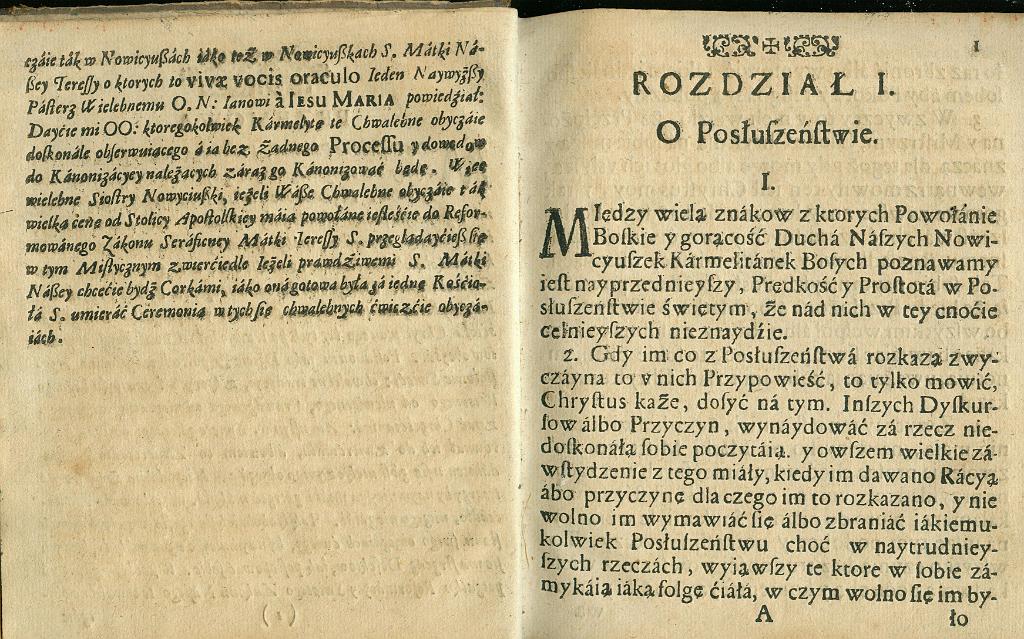 czáie ták w Nowicyußách iáko też w Nowicyußkach S. Mátki Ná-
ßey Teressy o ktorych to vivæ vocis oraculo Ieden Naywyżßy
Pásterz Wielebnemu O. N: Ianowi à IESU MARIA powiedźiał:
Dayćie mi OO: ktoregokolwiek Kármelytę te Chwalebne obyczáie
doſkonále obſerwuiącego á ia bez żadnego Proceſſu y dowodow
do Kánonizácyey należących záraz go Kánonizowáć będę. W ięc
wielebne Sioſtry Nowyciußki, ieżeli Wáße Chwalebne obyczáie ták
wielką cenę od Stolicy Apoſtolſkiey máią powołáne ieſteśćie do Refor-
mowánego Zákonu Seráficney Mátki Tereſſy S. przeglądayćieß ſię
w tym Miſtycznym zwierćiedle Ieżeli prawdźiwemi S. Mátki
Náßey chcećie bydź Corkámi, iáko oná gotowa była zá iednę Kośćio-
łá S. umieráć Ceremonią w tych ſię chwalebnych ćwiczćie obyczá-
iách.
(1)
1
ROZDZIAŁ I.
O Poſłuſzeńſtwie.
I.
MIędzy wielą znákow z ktorych Powołánie
Boſkie y gorącość Duchá Náſzych Nowi-
cyuſzek Kármelitánek Boſych poznawamy
ieſt nayprzednieyſzy, Prędkość y Proſtotá w Po-
słuſzeńſtwie świętym, że nád nich w tey cnoćie
celnieyſzych nieznaydźie.
2. Gdy im co z Poſłuſzeńſtwá rozkażą zwy-
czáyna to v nich Przypowieść, to tylko mowić,
Chryſtus każe, doſyć ná tym. Inſzych Dyſkur-
ſow álbo Przyczyn, wynáydowáć zá rzecz nie-
doſkonáłą ſobie poczytáią. y owſzem wielkie zá-
wſtydzenie z tego miáły, kiedy im dawano Rácyą
ábo przyczynę dla czego im to rozkazano, y nie
wolno im wymawiáć ſię álbo zbraniáć iákiemu-
kolwiek Poſłuſzeńſtwu choć w naytrudniey-
ſzych rzeczách, wyiąwſzy te ktore w ſobie zá-
mykáią iáką folgę ćiáłá, w czym wolno ſię im by-
A ło